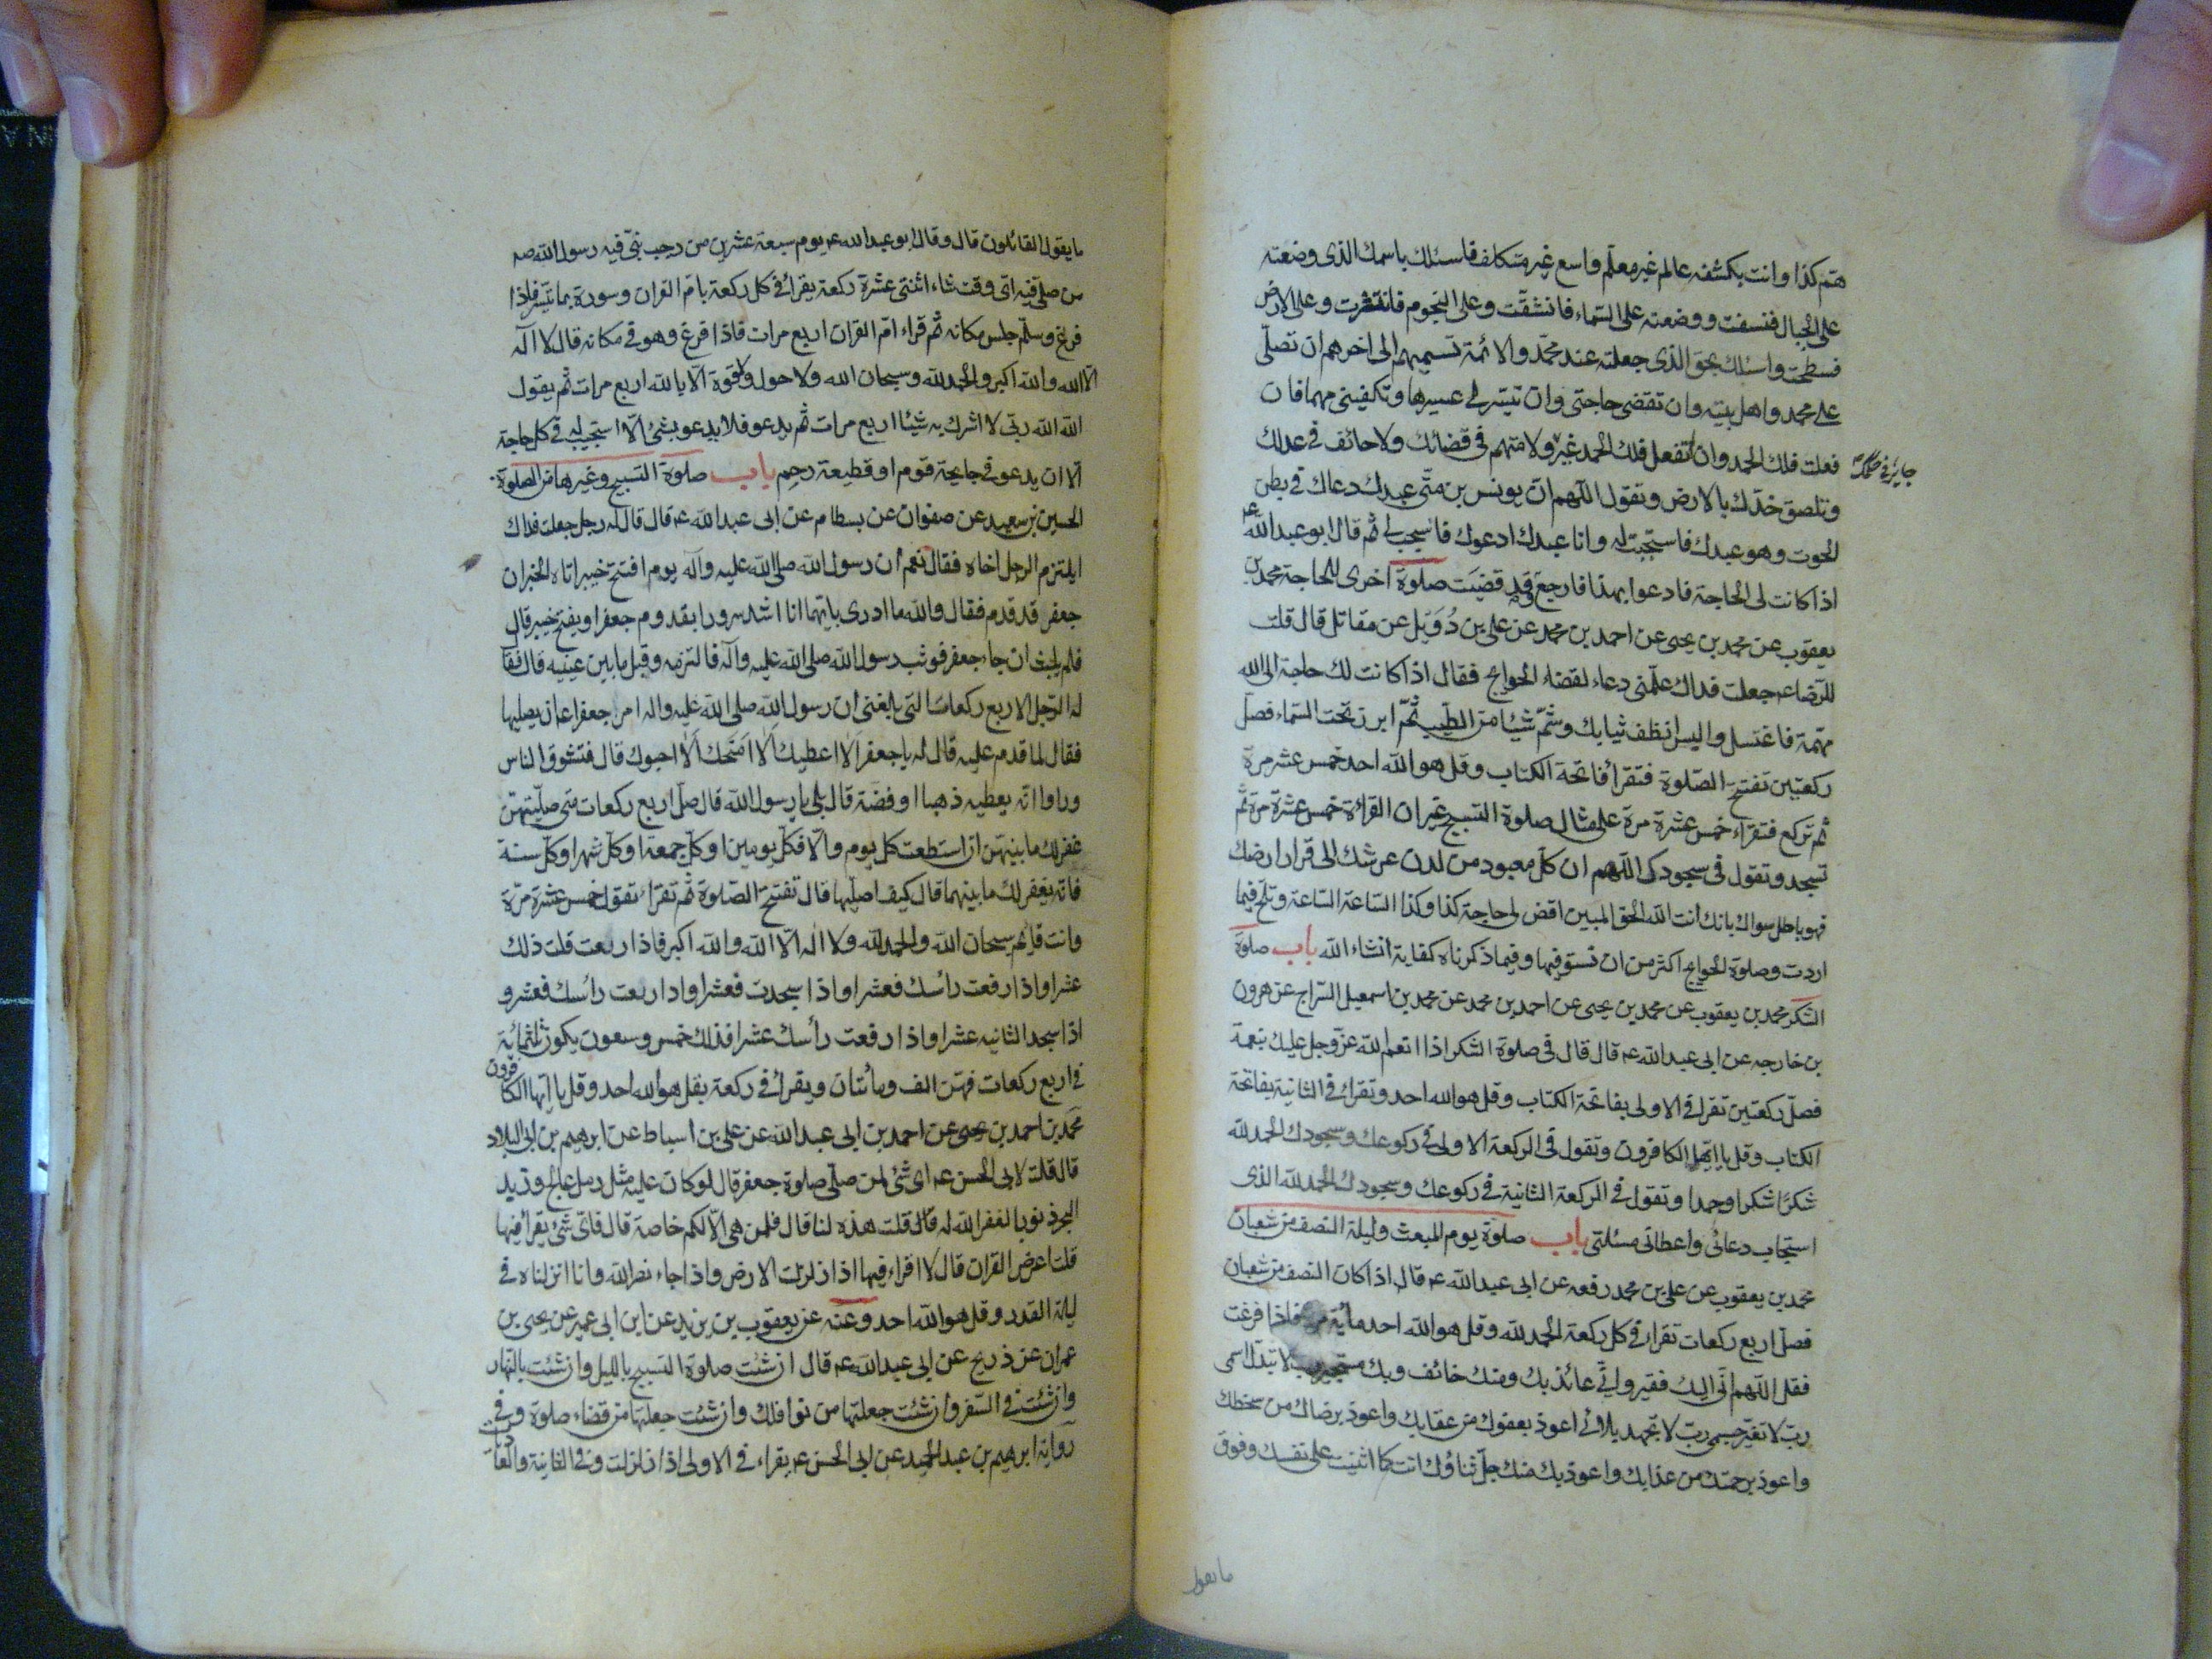 همّ كذا وانت بكشفه عالم غير معلّم واسع غير متكلف فاسئلك باسمك الذى وضعته
على الجبال فنسفت ووضعته على السّماء فانشقّت وعلى النجوم فانتثرت وعلى الارض
فسطحت واسئلك بحق الذى جعلته عند محمّد والائمة تسميهم الى اخرهم ان تصلّى
على محمد واهل بيته وان تقضى حاجتى وان تيسّر لى عسيرها وتكفينى مهمها فان
فعلت فلك الحمد وان لم تفعل فلك الحمد غير ولا متهم فى قضائك ولا حائف فى عدلك
جاير فى حكمك
وتلصق خدّك بالارض وتقول اللّهم ان يونس بن متّى عبدك دعاك فى بطن
الحوت وهو عبدك فاستجبت له وانا عبدك ادعوك فاستجب لى ثم قال ابو عبد الله ع
اذا كانت لى الحاجة فادعوا بهذا فارجع وقد قضيَت صلوة اخرى للحاجة محمد بن
يعقوب عن محمد بن يحيى عن احمد بن محمد عن على بن دُوَيل عن مقاتل قال قلت
للرّضا عـ جعلت فداك علّمنى دعاء لقضاء الحوائج فقال اذا كانت لك حاجة الى الله
مهمة فاغتسل والبس انظف ثيابك وشمّ شيئا من الطيب ثمّ ابرز تحت السّماء فصلّ
ركعتين تفتتح الصّلوة فتقرأ فاتحة الكتاب وقل هو الله احد خمس عشر مرة
ثم تركع فتقراء خمس عشرة مرة على مثال صلوة التسبيح غير ان القرائة خمس عشرة مرة ثم
تسجد وتقول فى سجودك اللّهم ان كلّ معبود من لدن عرشك الى قرار ارضك
فهو باطل سواك بانك انت الله الحق المبين اقض لى حاجة كذا وكذا السّاعة السّاعة وتلح فيما
اردت وصلوة الحوايج اكثر من ان نستوفيها وفيما ذكرناه كفاية انشاء الله باب صلوة
الشكر محمد بن يعقوب عن محمد بن يحيى عن احمد بن محمد عن محمد بن اسمعيل السّراج عن هرون
بن خارجه عن ابى عبد الله عـ قال قال فى صلوة الشكر اذا انعم الله عزّ وجل عليك بنعمة
فصلّ ركعتين تقرأ فى الاولى بفاتحة الكتاب وقل هو الله احد وتقراء فى الثانية بفاتحة
الكتاب وقل يا ايّها الكافرون وتقول فى الركعة الاولى فى ركوعك وسجودك الحمد لله
شكرًا شكرا وحمدا وتقول فى الركعة الثانية فى ركوعك وسجودك الحمد لله الذى
استجاب دعائى واعطانى مسئلتى باب صلوة يوم المبعث وليلة النصف من شعبان
محمد بن يعقوب عن على بن محمد رفعه عن ابى عبد الله عـ قال اذا كان النصف من شعبان
فصلّ اربع ركعات تقراء فى كل ركعة الحمد لله وقل هو الله احد مائة مرة فاذا فرغت
فقل اللّهم انّى اليك فقير وانّى عائذ بك ومنك خائف وبك مستجير ربّ لا تبدّل اسمى
ربّ لا تغيّر جسمى ربّ لا تجهد بلائى اعوذ بعفوك من عقابك واعوذ برضاك من سخطك
واعوذ برحمتك من عذابك واعوذ بك منك جلّ ثناؤك انت كما اثنيت على نفسك وفوق
ما يقول
ما يقول القائلون قال وقال ابو عبد الله عـ يوم سبعة عشرين من رجب نبّى فيه رسول الله صـ
من صلّى فيه اىّ وقت شاء اثنتى عشرة ركعة يقرأ فى كل ركعة بام القران وسورة بما تيسّر فاذا
فرغ وسلّم جلس مكانه ثم قراء امّ القران اربع مرات فاذا فرغ وهو فى مكانه قال لا اله
الّا الله والله اكبر والحمد لله وسبحان الله ولا حول ولا قوة الّا بالله اربع مرات ثم يقول
الله الله ربّى لا اشرك به شيئا اربع مرات ثم يدعو فلا يدعو بشئ الّا استجيب له فى كل حاجة
الّا ان يدعو فى جايحة قوم او قطيعة رحِم باب صلوة التسبيح وغيرها من الصلوة
الحسين بن سعيد عن صفوان عن بسطام عن ابى عبد الله عـ قال قال له رجل جعلت فداك
ايلتزم الرجل اخاه فقال نعم ان رسول الله صلى الله عليه وآله يوم افتتح خيبر اتاه الخبر ان
جعفر قد قدم فقال والله ما ادرى بايّهما انا اشد سرورا بقدوم جعفر او بفتح خيبر قال
فلم يلبث ان جاء جعفر فوثب رسول الله صلى الله عليه وآله فالتزمه وقبل ما بين عينيه قال فقا
له الرّجل الاربع ركعات التى بلغنى ان رسول الله صلى الله عليه واله امر جعفرا عـ ان يصليها
فقال لما قدم عليه قال له يا جعفر اَلا اعطيك اَلا امنحك اَلا احبوك قال فتشوق الناس
وراوا انّه يعطيه ذهبا او فضّة قال بلى يا رسول الله قال صلّ اربع ركعات متى صلّيتهنّ
غفر لك ما بينهنّ ان استطعت كل يوم والّا فكلّ يومين او كلّ جمعة او كلّ شهر او كلّ سنة
فانّه يغفر لك ما بينهما قال كيف اصلّيها قال تفتتح الصّلوة ثم تقراء تقول خمس عشرة مرّة
وانت قايم سبحان الله والحمد لله ولا اله الّا الله والله اكبر فاذا ركعت قلت ذلك
عشرا واذا رفعت رأسك فعشرا واذا سجدت فعشرا واذا رفعت رأسك فعشر و
اذا سجد الثانيه عشرا واذا رفعت رأسك عشرا فذلك خمس وسبعون يكون ثلثمائة
فى اربع ركعات فهنّ الف ومأئتان ويقرأ فى ركعة بقل هو الله احد وقل يا ايّها الكافرون
محمّد بن احمد بن يحيى عن احمد بن ابى عبد الله عن على بن اسباط عن ابرهيم بن ابى البلاد
قال قلت لابى الحسن عـ اى شئ لمن صلّى صلوة جعفر قال لو كان عليه مثل رمل عالج وزبد
البحر ذنوبا لغفر الله له قال قلت هذه لنا قال فلمن هى الّا لكم خاصة قال فاىّ شئ يقرأ فيها
قلت اعرض القران قال لا اقراء فيها اذا زلزلت الارض واذا جاء نصر الله وانا انزلناه فى
ليلة القدر وقل هو الله احد وعنه عن يعقوب بن يزيد عن ابن ابى عمير عن يحيى بن
عمران عن ذريح عن ابى عبد الله عـ قال ان شئت صلوة التسبيح بالليل وان شئت بالنّهار
وان شئت فى السّفر وان شئت جعلتها من نوافلك وان شئت جعلتها من قضاء صلوة وفى
رواية ابرهيم بن عبد الحميد عن ابى الحسن عـ يقراء فى الاولى اذا زلزلت وفى الثانية والعاديات